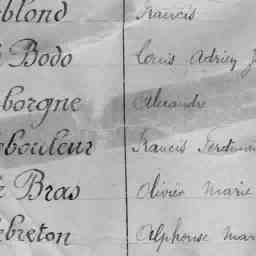 blond Francis
Bodo Louis Adrien J
borgne Alexandre
bouleur Francis Ferdinan
Bras Olivier Marie
ebreton Alphonse Mar